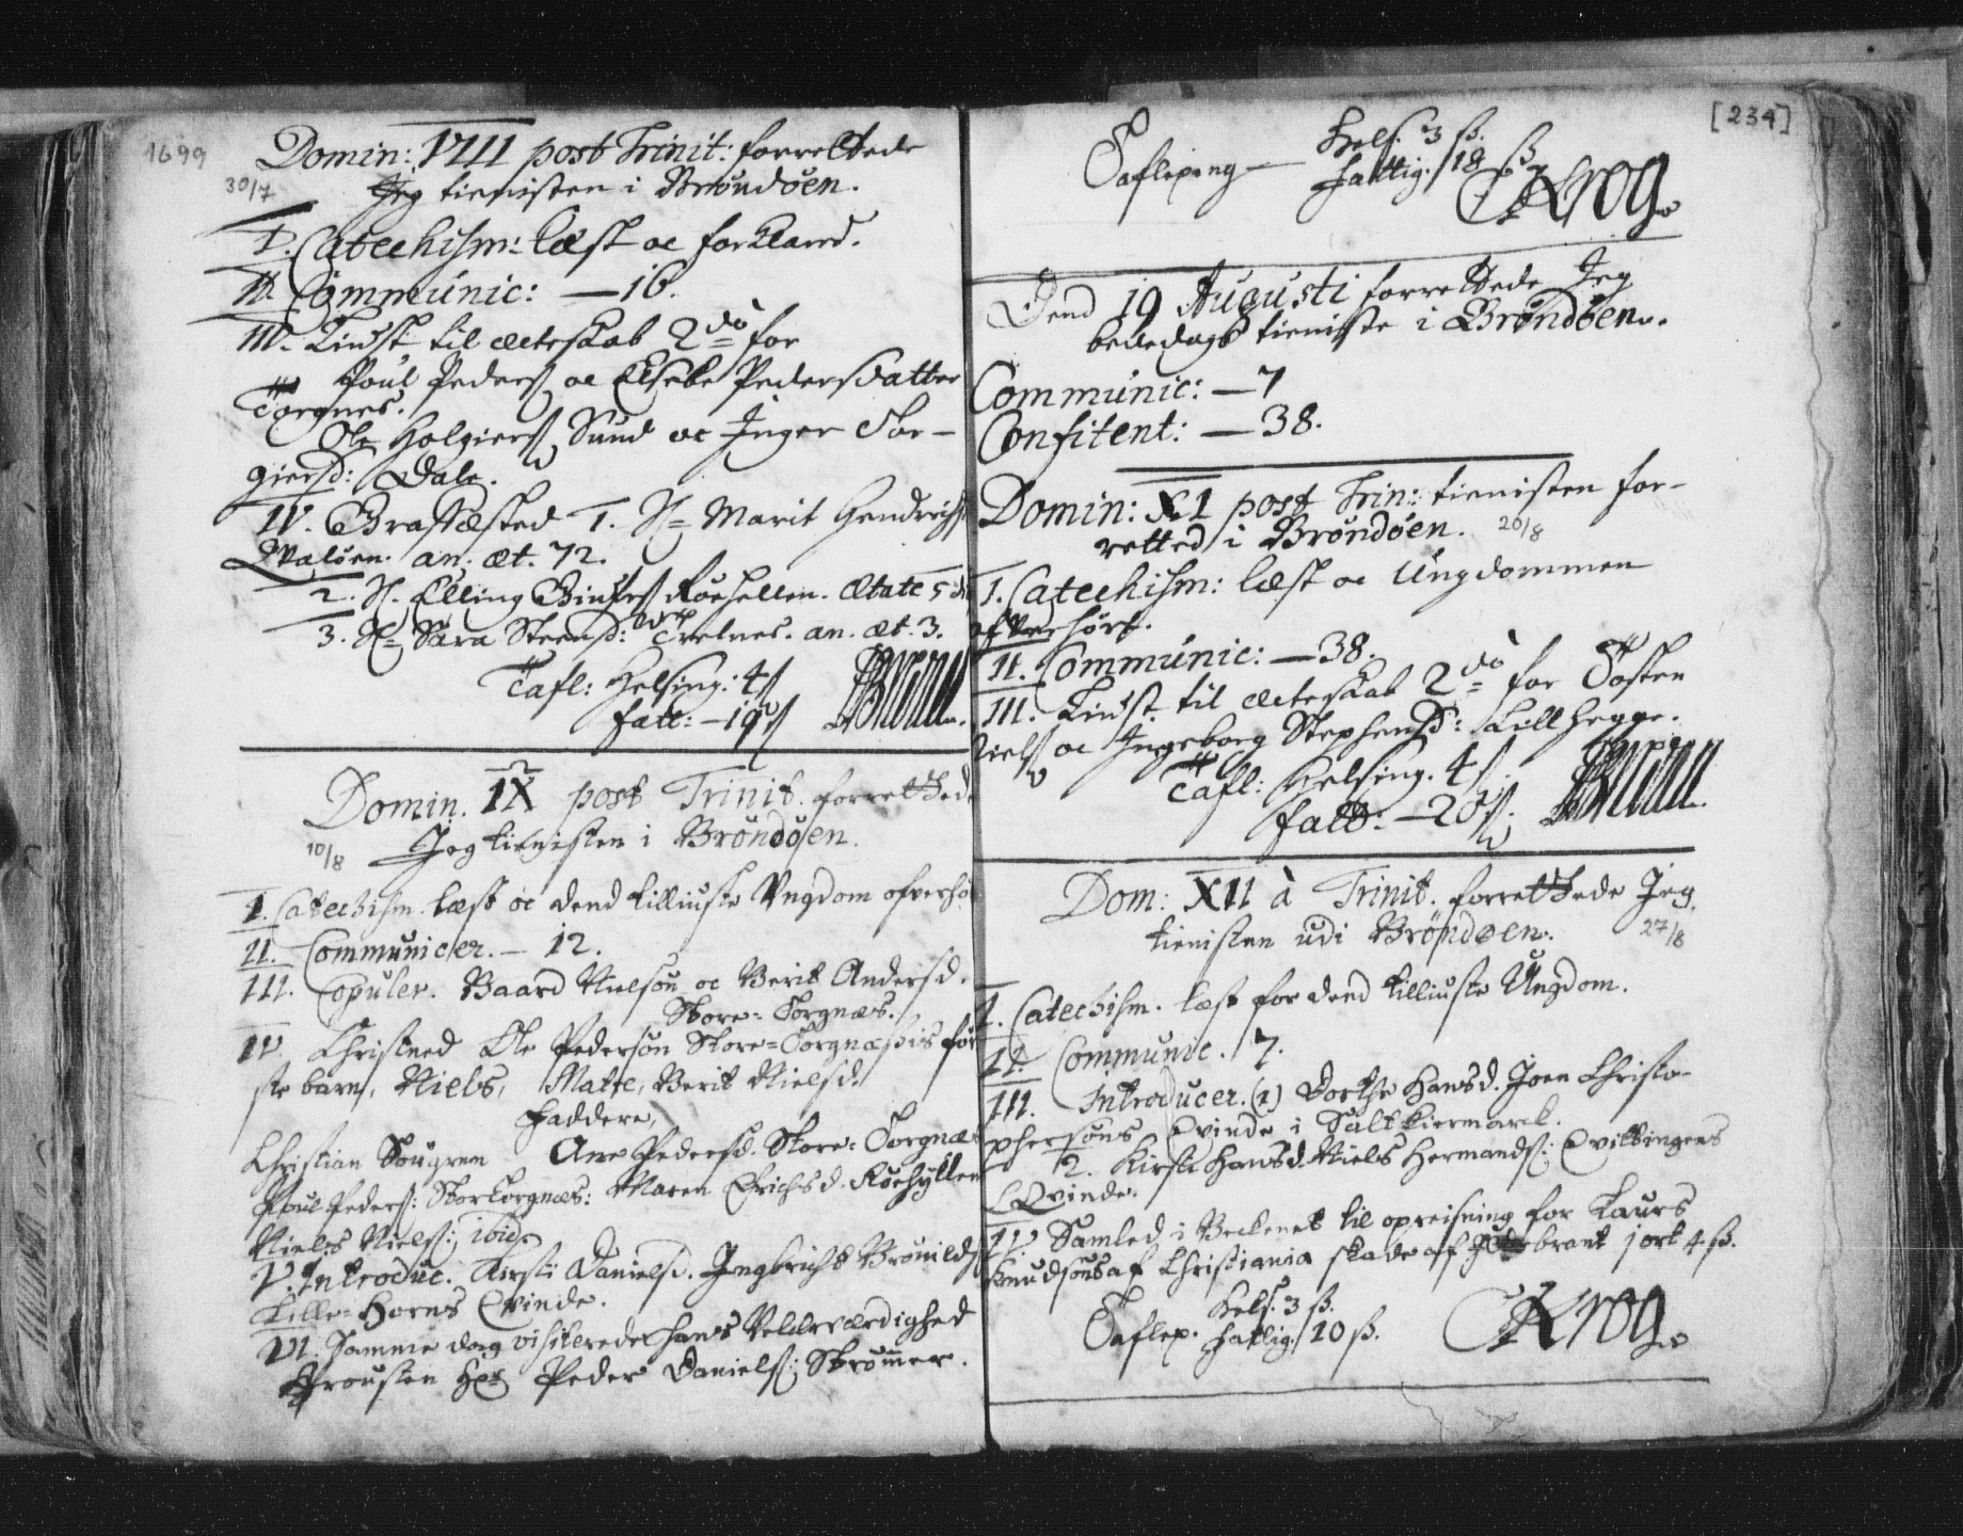 1699
Domin: VIII post Trinit: forrettede
30/7
Jeg tienisten i Brøndøen.
I. Catechism: læst oc forklared.
II. Communic: — 16.
III. Liust til ecteskab 2do for
Poul Peders oc Elsebe Pedersdatter
Torgnes.
Ole Holgiers Sund oc Inger Tor-
giersd: Dale.
IV. Graffæsted 1. Marit Hendrichs
Qvaløen. an. æt. 72.
2. Elling Roehellen. Ætate 5
3. Sara Steensd: Trelnes. an. æt. 3.
Tafl: Helsing: 4
fatt: — 19
Domin. IX post Trinit. forrettede
10/8
Jeg tienisten i Brøndøen.
I. Catechism. læst oc dend tilliuste Ungdom ofverhø
II. Communicer. — 12.
III. Copuler. Baard Nielsøn oc Berit Andersd.
Store-Torgnæs.
IV. Christned Ole Pedersøn Store-Torgnæsis før-
ste barn, Niels, Matte, Berit Nielsd.
Faddere,
Christian Ane Pedersd. Store-Torgnæs
Poul Peders: StorTorgnæs: Maren Erichsd. Roehyllen
Niels Niels: ibid.
V. Introduc. Kirsti Daniels. Ingbricht Brønilds
Lille-Horns Qvinde.
VI. Samme dag visiterede hans Velærværdighed
Prousten Hr Peder Daniels: Strømer.
[234]
Taflepeng — Hels: 3 ß.
fattig: 18 ß
CKrog.
Dend 19 Augusti forrettede Jeg
bededags tieniste i Brøndøen.
Communic: — 7
Confitent: — 38.
Domin: XI post Trin: tienisten for-
retted i Brøndøen. 20/8
I. Catechism: læst oc Ungdommen
ofverhørt.
II. Communic: — 38.
III. Liust til ecteskab 2do for Tosten
Niels oc Ingeborg Stephensd: Lillhegge.
Tafl: Helsing. 4
fatt: — 20
Dom: XII à Trinit. forrettede Jeg
tienisten udi Brøndøen. 27/8
I. Catechism. læst for dend tilliuste Ungdom.
II. Communic. 7.
III. Introducer. (1) Dorthe Hansd. Joen Christo-
phersøns Qvinde i Saltkiermarck.
2. Kirsti Hansd. Niels Hermands: Qvittingens
Qvinde.
IV. Samled i Beckenet til opreisning for Laurs
Knudsøns af Christiania skade af brant 1 ort 4 ß.
Taflep. Hels: 3 ß.
fattig. 10 ß.
CKrog.